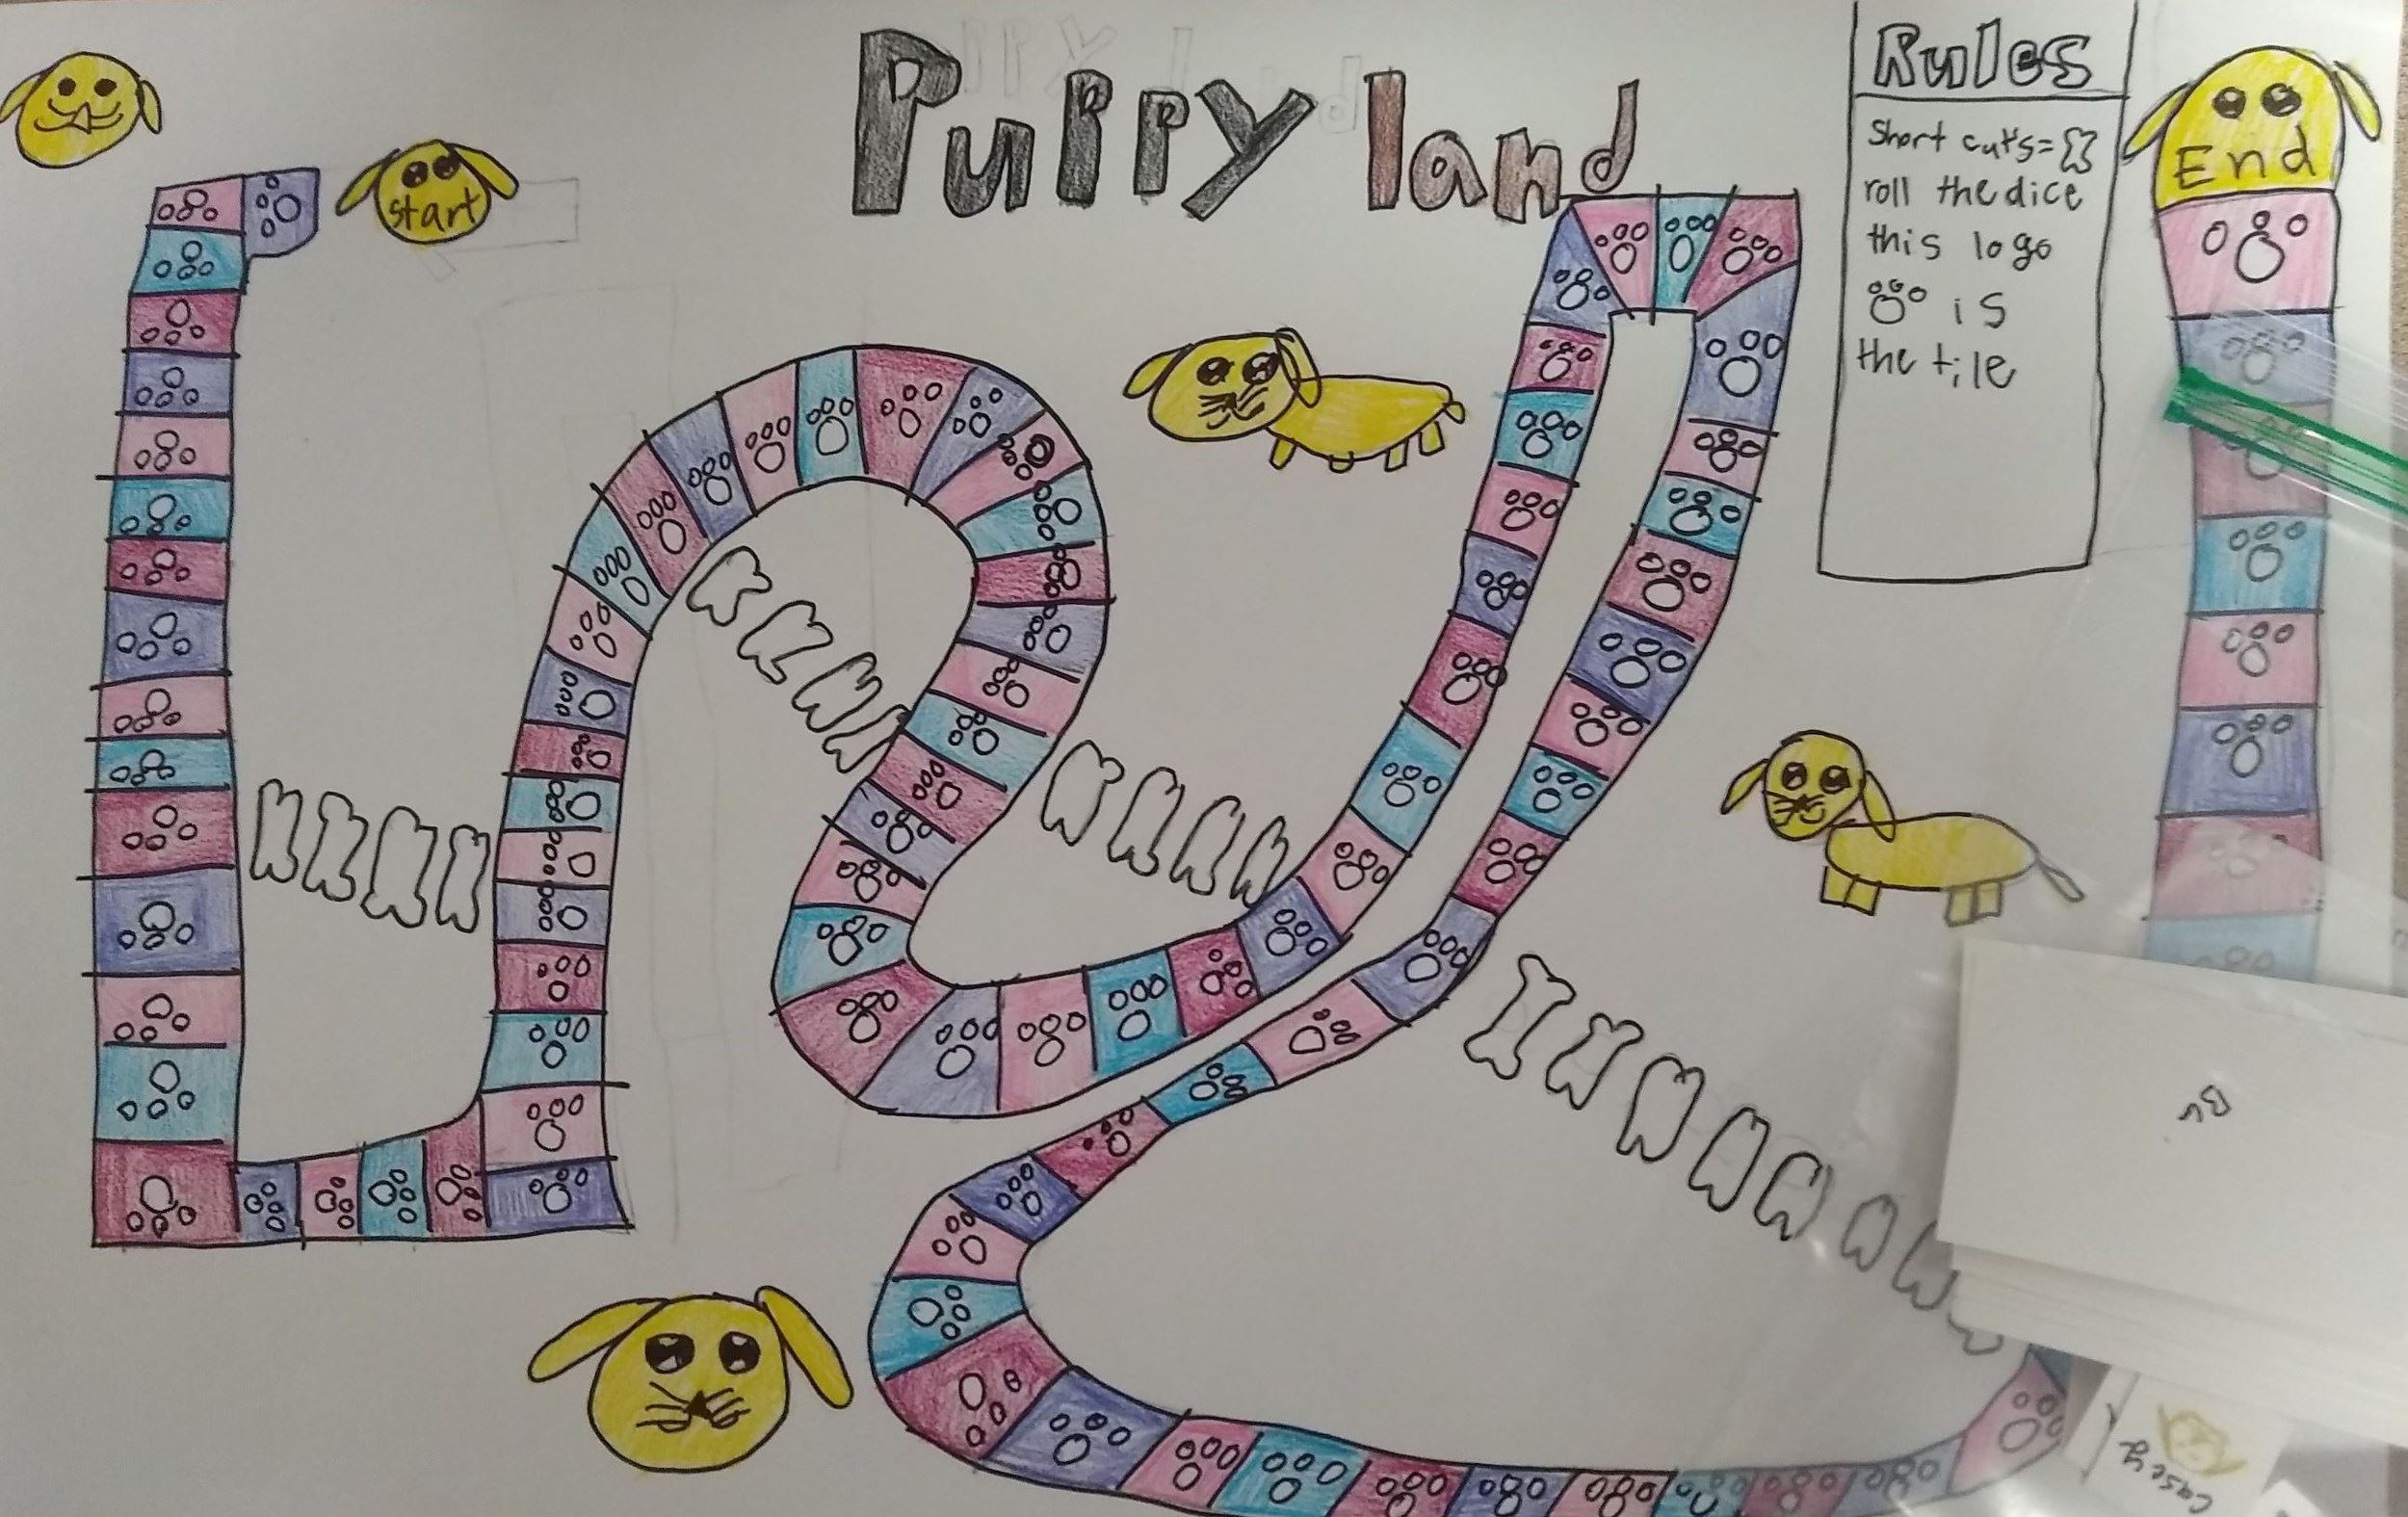 Puppy land
start
Rules
Short cuts=
roll the dice
this logo
is
the tile
End
By
Casey